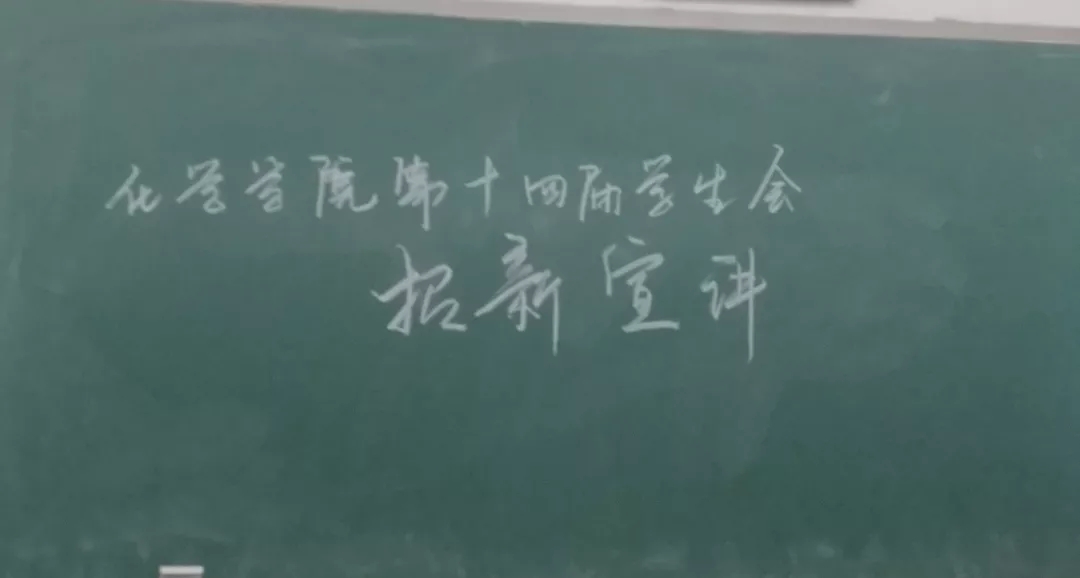 化学学院第十四届学生会
招新宣讲